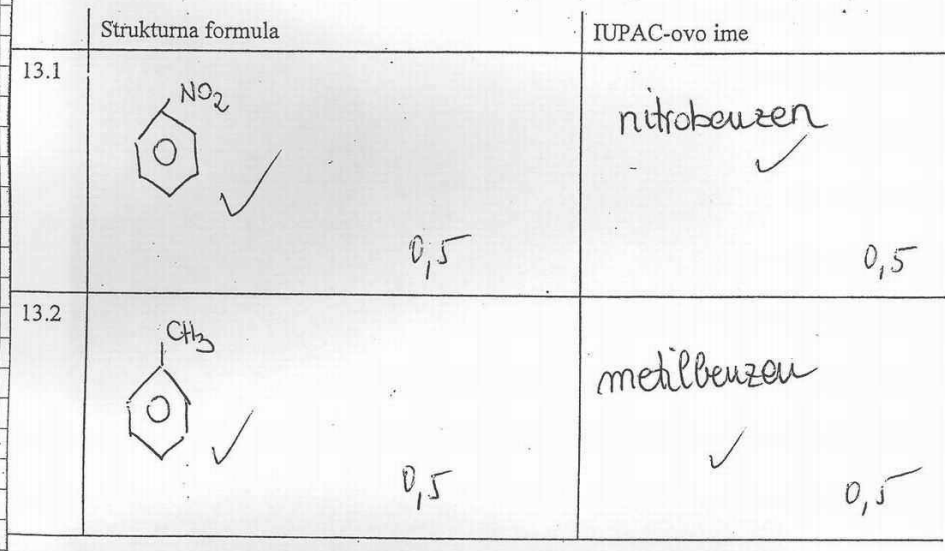 Strukturna formula
IUPAC-ovo ime
13.1
NO₂
nitrobenzen
0,5
0,5
13.2
CH₃
metilbenzen
0,5
0,5